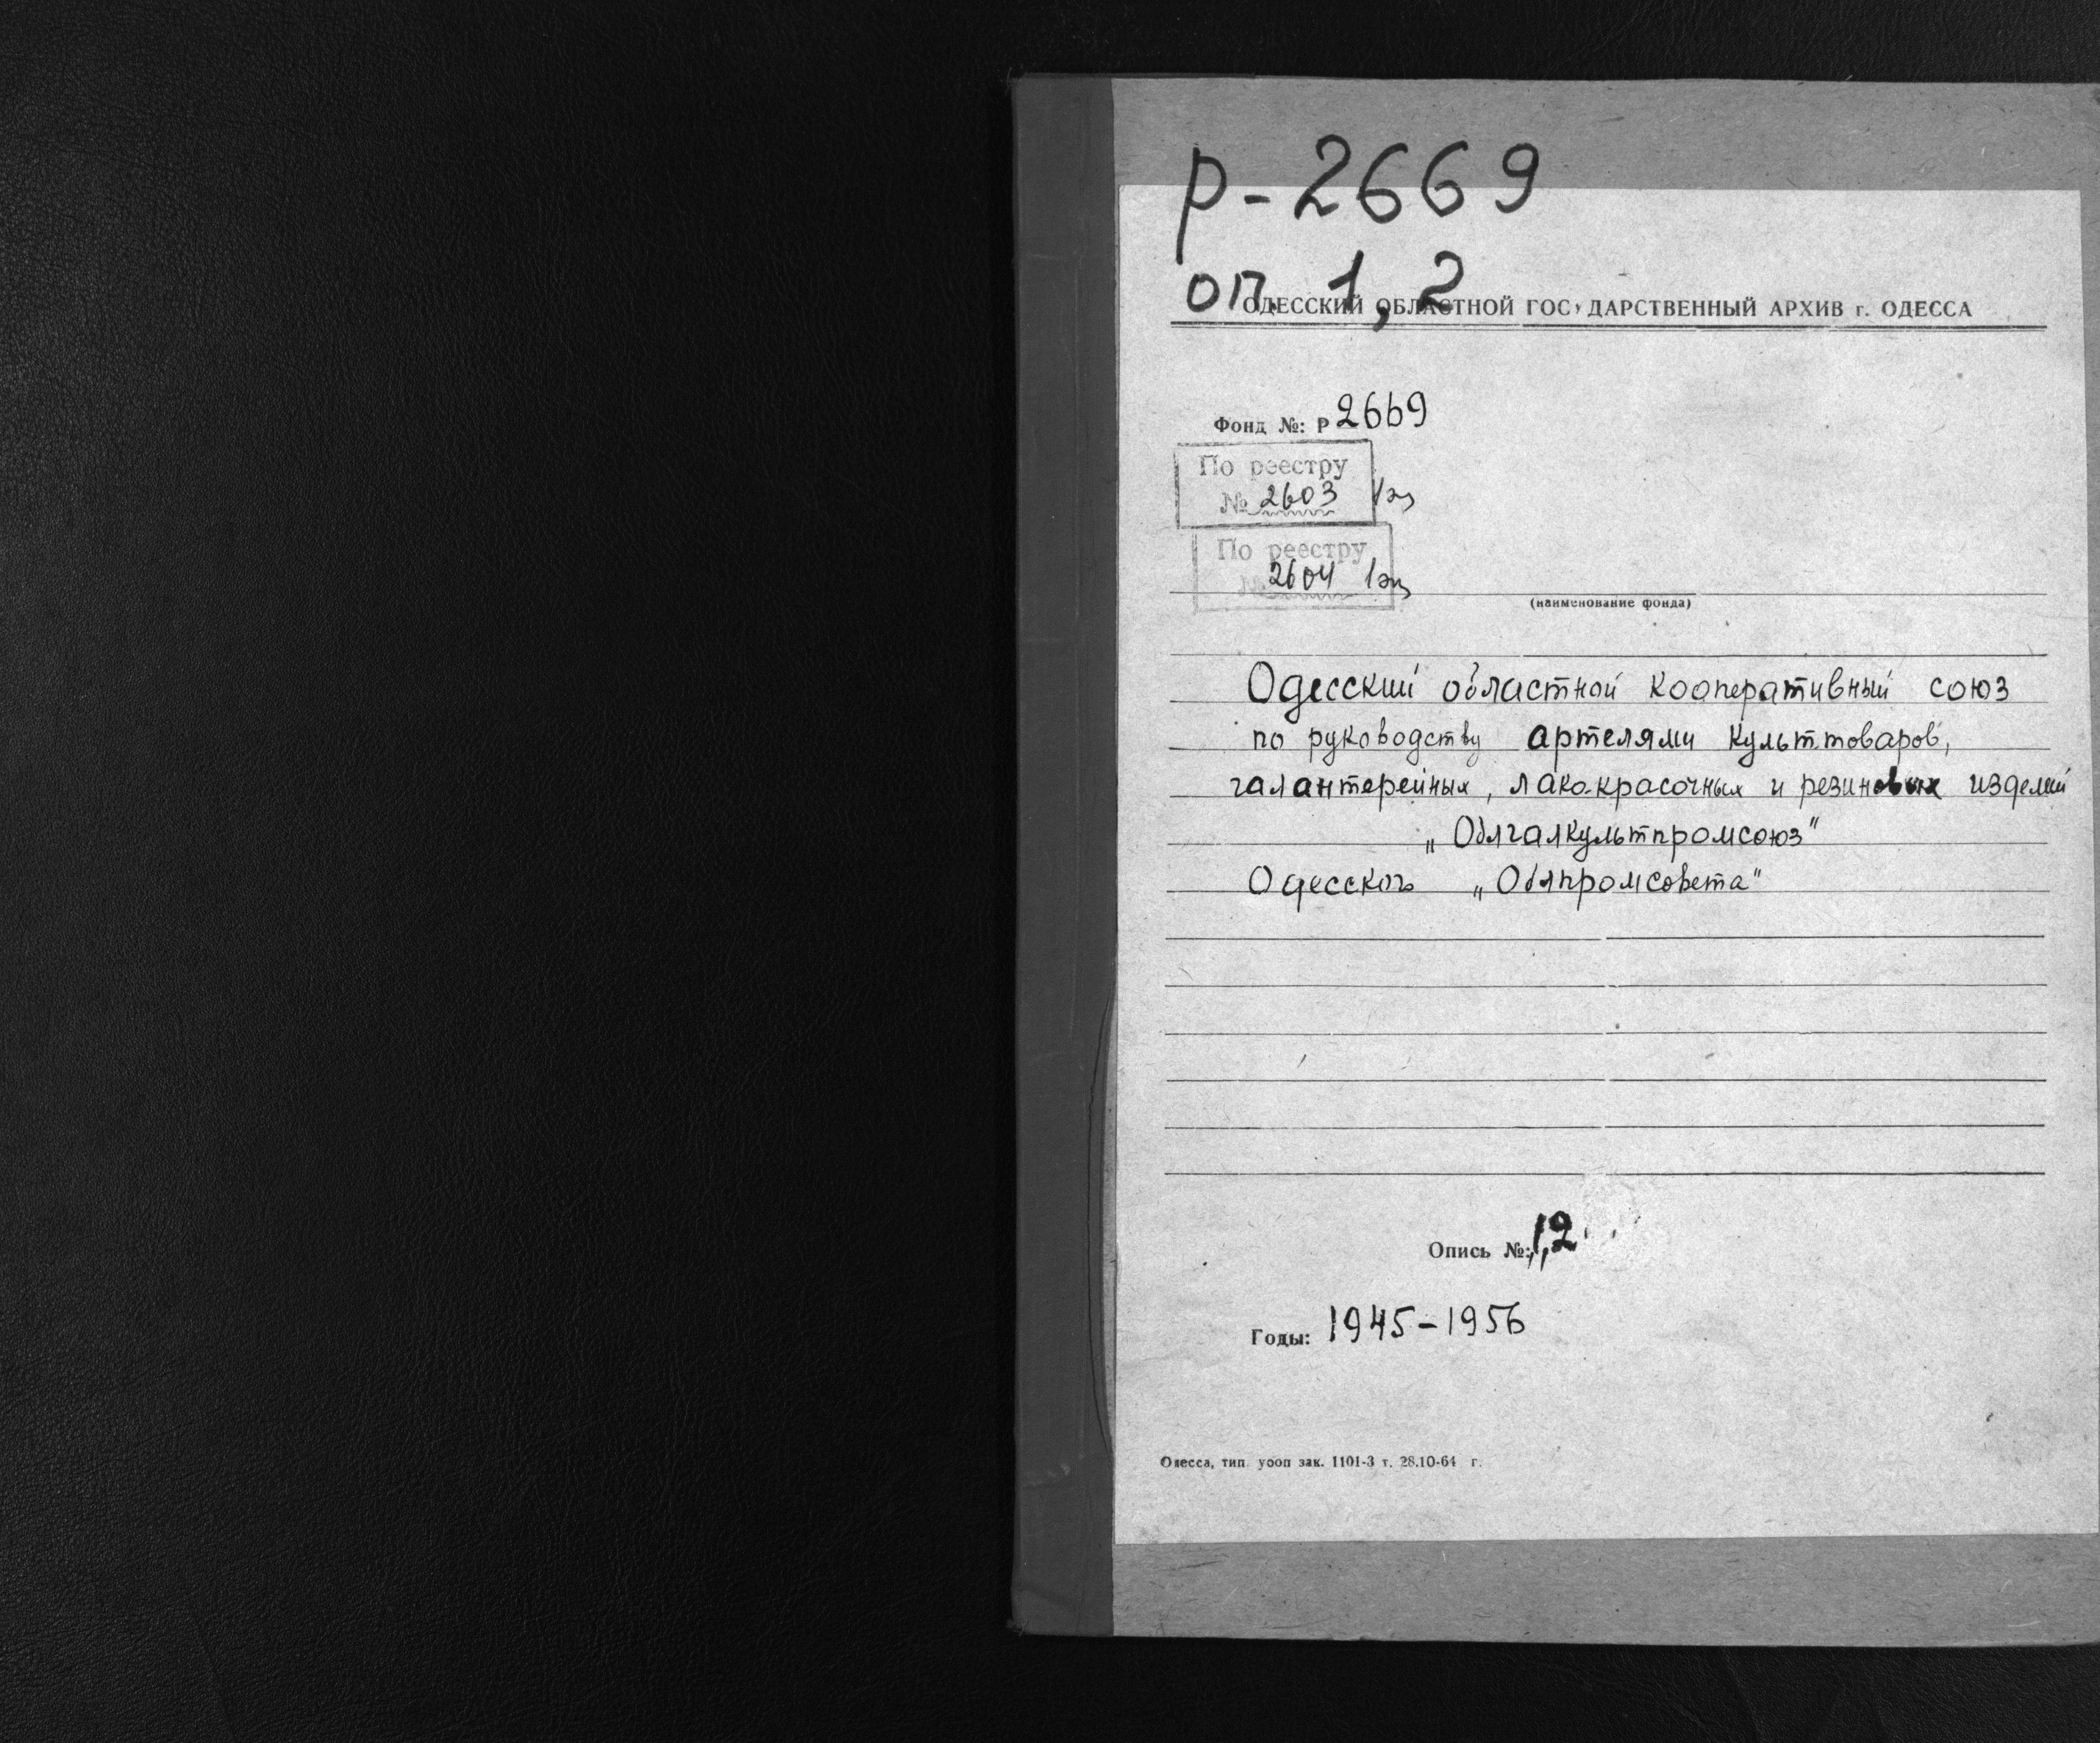 Р-2669
оп. 1, 2
ОДЕССКИЙ ОБЛАСТНОЙ ГОСУДАРСТВЕННЫЙ АРХИВ г. ОДЕССА
Фонд №: Р 2669
По реестру
№ 2603 1эк
По реестру
№ 2604 1эк
(наименование фонда)
Одесский областной кооперативный союз
по руководству артелями культтоваров,
галантерейных, лако-красочных и резиновых изделий
„Облгалкультпромсоюз"
Одесского „Облпромсовета"
Опись №: 1,2
Годы: 1945-1956
Одесса, тип. уооп зак. 1101-3 т. 28.10-64 г.